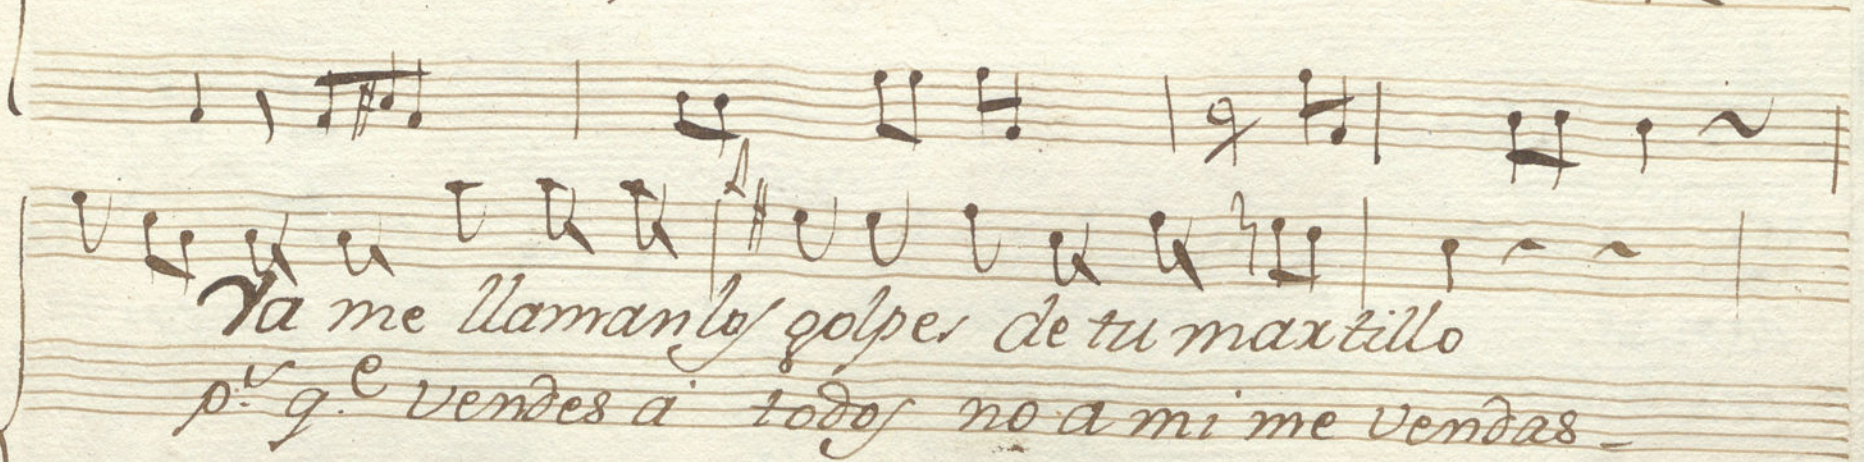 Ya me llaman los golpes de tu martillo
p.r q.e vendes a todos no a mi me vendas